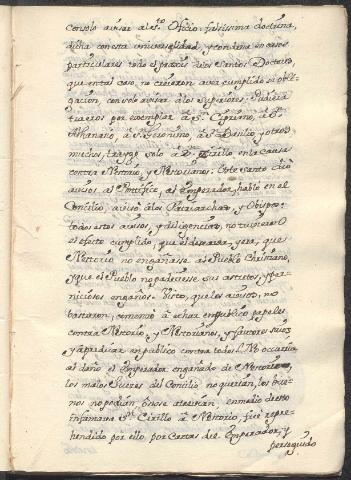 con solo avisar al S.to Oficio: falsissima doctrina,
dicha con esta universalidad, y condena en casos
particulares todo el proceder de los Santos Doctores,
que en tal caso, no creyeron aver cumplido su obli-
gacion, con solo avisar a los Superiores. Pudiera
traeros por exemplar à S.n Cipriano, à S.n
Athanasio, à S.n Geronimo, à S.n Basilio y otros
muchos, traygo solo à S.n Cirillo, en la Causa
contra Nestorio, y Nestorianos. Este Santo dio
avisos al Pontifice, al Emperador, hablò en el
Concilio, avisò à los Patriarchas, y Obispos:
todos estos avisos, y diligencias, no tuvieron
el efecto cumplido, que el deseava, y era, que
Nestorio no engañasse al Pueblo Christiano,
y que el Pueblo no padeciesse sus astutos, y per-
niciosos engaños. Visto, que los avisos, no
bastaron, comenzò à echar en publico papeles
contra Nestorio, y Nestorianos, y fautores suios
y à predicar en publico contra todos. No ocurria
al daño el Emperador engañado de Nestorio,
los malos Jueces del Concilio no querian, los bue-
nos no podian, ò no se atrevian. en medio de esto
infamava S.n Cirillo à Nestorio, fuè repre-
hendido por ello, por Cartas del Emperador, y
perseguido